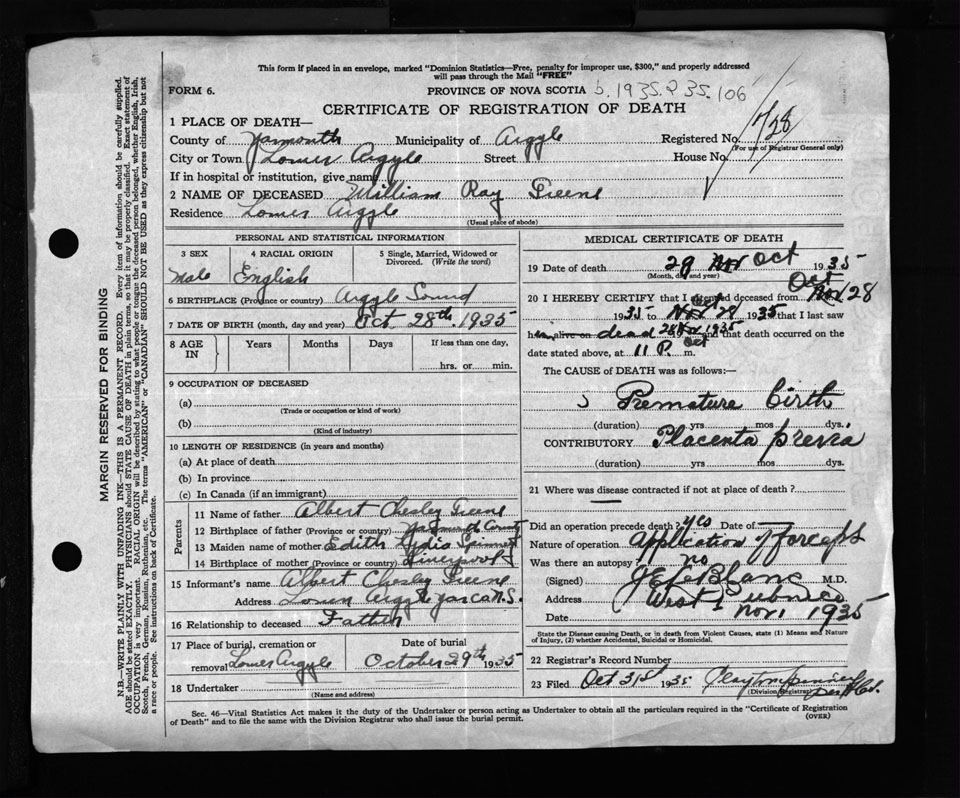 This form if placed in an envelope, marked "Dominion Statistics—Free, penalty for improper use, $300," and properly addressed
will pass through the Mail "FREE"
FORM 6. PROVINCE OF NOVA SCOTIA b. 1935. P 35. 106
CERTIFICATE OF REGISTRATION OF DEATH
1 PLACE OF DEATH—
County of Yarmouth Municipality of Argyle Registered No. 1728
(For use of Registrar General only)
City or Town Lower Argyle Street House No.
If in hospital or institution, give name
2 NAME OF DECEASED William Ray Greene
Residence Lower Argyle
(Usual place of abode)
PERSONAL AND STATISTICAL INFORMATION
3 SEX 4 RACIAL ORIGIN 5 Single, Married, Widowed or
Divorced. (Write the word)
Male English
6 BIRTHPLACE (Province or country) Argyle Sound
7 DATE OF BIRTH (month, day and year) Oct. 28th 1935
8 AGE IN Years Months Days If less than one day,
hrs. or min.
9 OCCUPATION OF DECEASED
(a)
(Trade or occupation or kind of work)
(b)
(Kind of industry)
10 LENGTH OF RESIDENCE (in years and months)
(a) At place of death
(b) In province
(c) In Canada (if an immigrant)
Parents
11 Name of father Albert Chesley Greene
12 Birthplace of father (Province or country) Yarmouth County
13 Maiden name of mother Edith Lydia Spinney
14 Birthplace of mother (Province or country) Liverpool
15 Informant's name Albert Chesley Greene
Address Lower Argyle Yar Co N.S.
16 Relationship to deceased Father
17 Place of burial, cremation or Date of burial
removal Lower Argyle October 29th 1935
18 Undertaker
(Name and address)
MEDICAL CERTIFICATE OF DEATH
19 Date of death 29 Nov Oct 1935
(Month, day and year)
20 I HEREBY CERTIFY that I attended deceased from Nov Oct 28
1935 to Nov Oct 28 1935 that I last saw
him alive on dead 28 Nov Oct 1935 and that death occurred on the
date stated above, at 11 P. m.
The CAUSE of DEATH was as follows:—
Premature birth
(duration) yrs mos dys.
CONTRIBUTORY Placenta previa
(duration) yrs mos dys.
21 Where was disease contracted if not at place of death?
Did an operation precede death? yes Date of
Nature of operation Application of forceps
Was there an autopsy? no
(Signed) J E LeBlanc M.D.
Address West Pubnico
Date Nov 1 1935
State the Disease causing Death, or in death from Violent Causes, state (1) Means and Nature
of Injury, (2) whether Accidental, Suicidal or Homicidal.
22 Registrar's Record Number
23 Filed Oct 31st 1935 Clayton Spinney
(Division Registrar)
Sec. 46—Vital Statistics Act makes it the duty of the Undertaker or person acting as Undertaker to obtain all the particulars required in the "Certificate of Registration
of Death" and to file the same with the Division Registrar who shall issue the burial permit. (OVER)
MARGIN RESERVED FOR BINDING
N.B.—WRITE PLAINLY WITH UNFADING INK—THIS IS A PERMANENT RECORD. Every item of information should be carefully supplied.
AGE should be stated EXACTLY. PHYSICIANS should STATE CAUSE OF DEATH in plain terms, so that it may be properly classified. Exact statement of
OCCUPATION is very important. RACIAL ORIGIN will be described by stating to what people or tongue the deceased person belonged, whether English, Irish,
Scotch, French, German, Russian, Ruthenian, etc. The terms "AMERICAN" or "CANADIAN" SHOULD NOT BE USED as they express citizenship but not
a race or people. See instructions on back of Certificate.